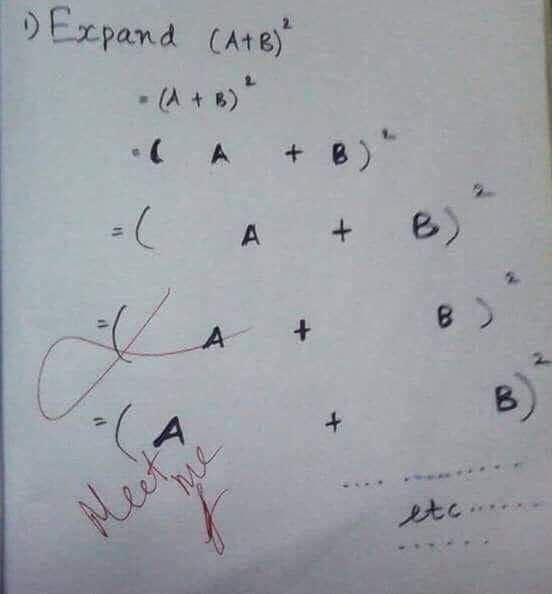 1) Expand (A+B)²
= (A + B)²
= ( A + B)²
= ( A + B)²
= ( A + B )²
= ( A + B)²
Meet me
.... .........
etc ......
.......